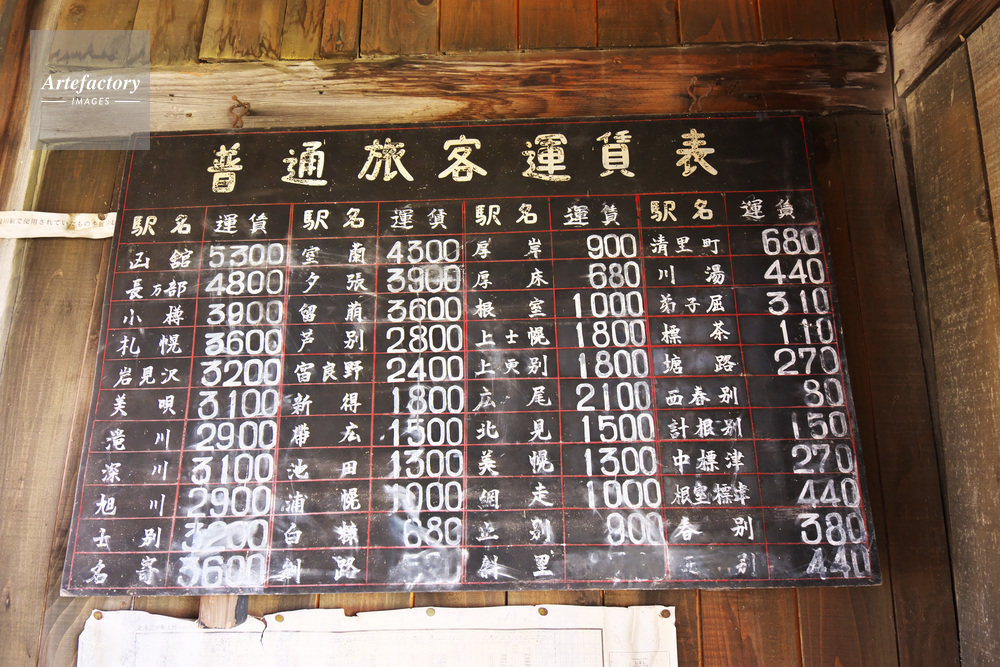 Artefactory
IMAGES
普通旅客運賃表
駅名 運賃 駅名 運賃 駅名 運賃 駅名 運賃
函館 5300 室蘭 4300 厚岸 900 清里町 680
長万部 4800 夕張 3900 厚床 680 川湯 440
小樽 3900 留萠 3600 根室 1000 弟子屈 310
札幌 3600 芦別 2800 上士幌 1800 標茶 110
岩見沢 3200 富良野 2400 上更別 1800 塘路 270
美唄 3100 新得 1800 広尾 2100 西春別 80
滝川 2900 帯広 1500 北見 1500 計根別 150
深川 3100 池田 1300 美幌 1300 中標津 270
旭川 2900 浦幌 1000 網走 1000 根室標津 440
士別 3200 白糠 680 止別 900 春別 380
名寄 3600 釧路 斜里 別 440